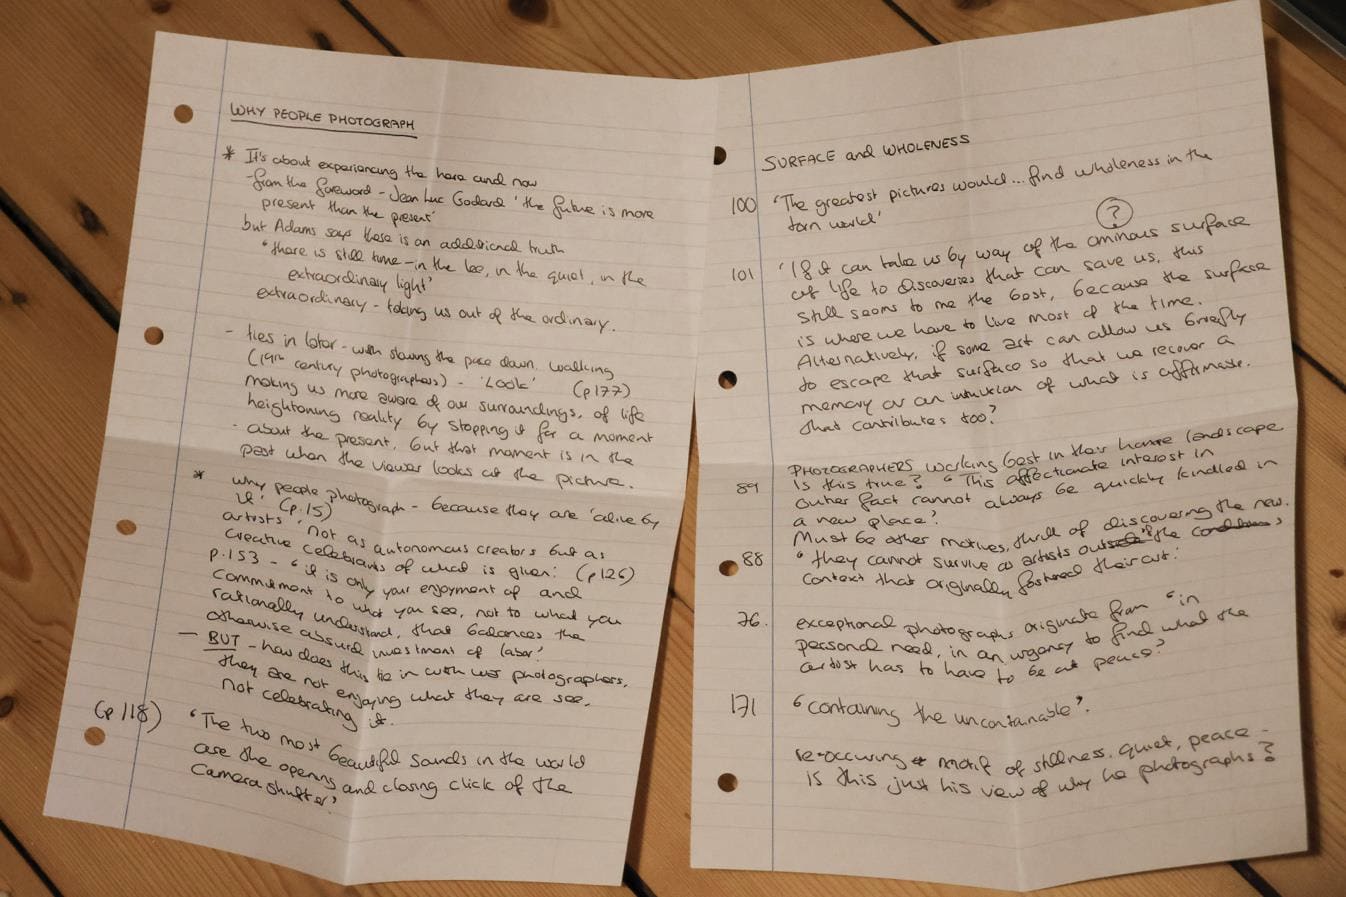 WHY PEOPLE PHOTOGRAPH
* It's about experiencing the here and now
- from the foreword - Jean Luc Godard 'the future is more
present than the present'
but Adams says there is an additional truth
'there is still time - in the lee, in the quiet, in the
extraordinary light'
extraordinary - taking us out of the ordinary.
- ties in later - with slowing the pace down. walking
(19th century photographers) - 'Look' (p177)
making us more aware of our surroundings, of life
heightening reality by stopping it for a moment
- about the present, but that moment is in the
past when the viewer looks at the picture.
* why people photograph - because they are 'alive by
it' (p.15)
artists 'not as autonomous creators but as
creative celebrants of what is given' (p126)
p.153 - 'it is only your enjoyment of and
commitment to what you see, not to what you
rationally understand, that balances the
otherwise absurd investment of labor'
- BUT - how does this tie in with war photographers,
they are not enjoying what they are see,
not celebrating it.
(p118) 'The two most beautiful sounds in the world
are the opening and closing click of the
camera shutter'
SURFACE and WHOLENESS
100 'The greatest pictures would... find wholeness in the
torn world'
?
101 'If it can take us by way of the ominous surface
of life to discoveries that can save us, this
still seems to me the best, because the surface
is where we have to live most of the time.
Alternatively, if some art can allow us briefly
to escape that surface so that we recover a
memory or an intuition of what is affirmate.
that contributes too'
PHOTOGRAPHERS working best in their home landscape
89 Is this true? 'This affectionate interest in
outer fact cannot always be quickly kindled in
a new place'
Must be other motives, thrill of discovering the new.
88 'they cannot survive as artists outside the conditions
context that originally fostered their art'
76. exceptional photographs originate from 'in
personal need, in an urgency to find what the
artist has to have to be at peace'
171 'containing the uncontainable'.
re-occuring motif of stillness, quiet, peace -
is this just his view of why he photographs?